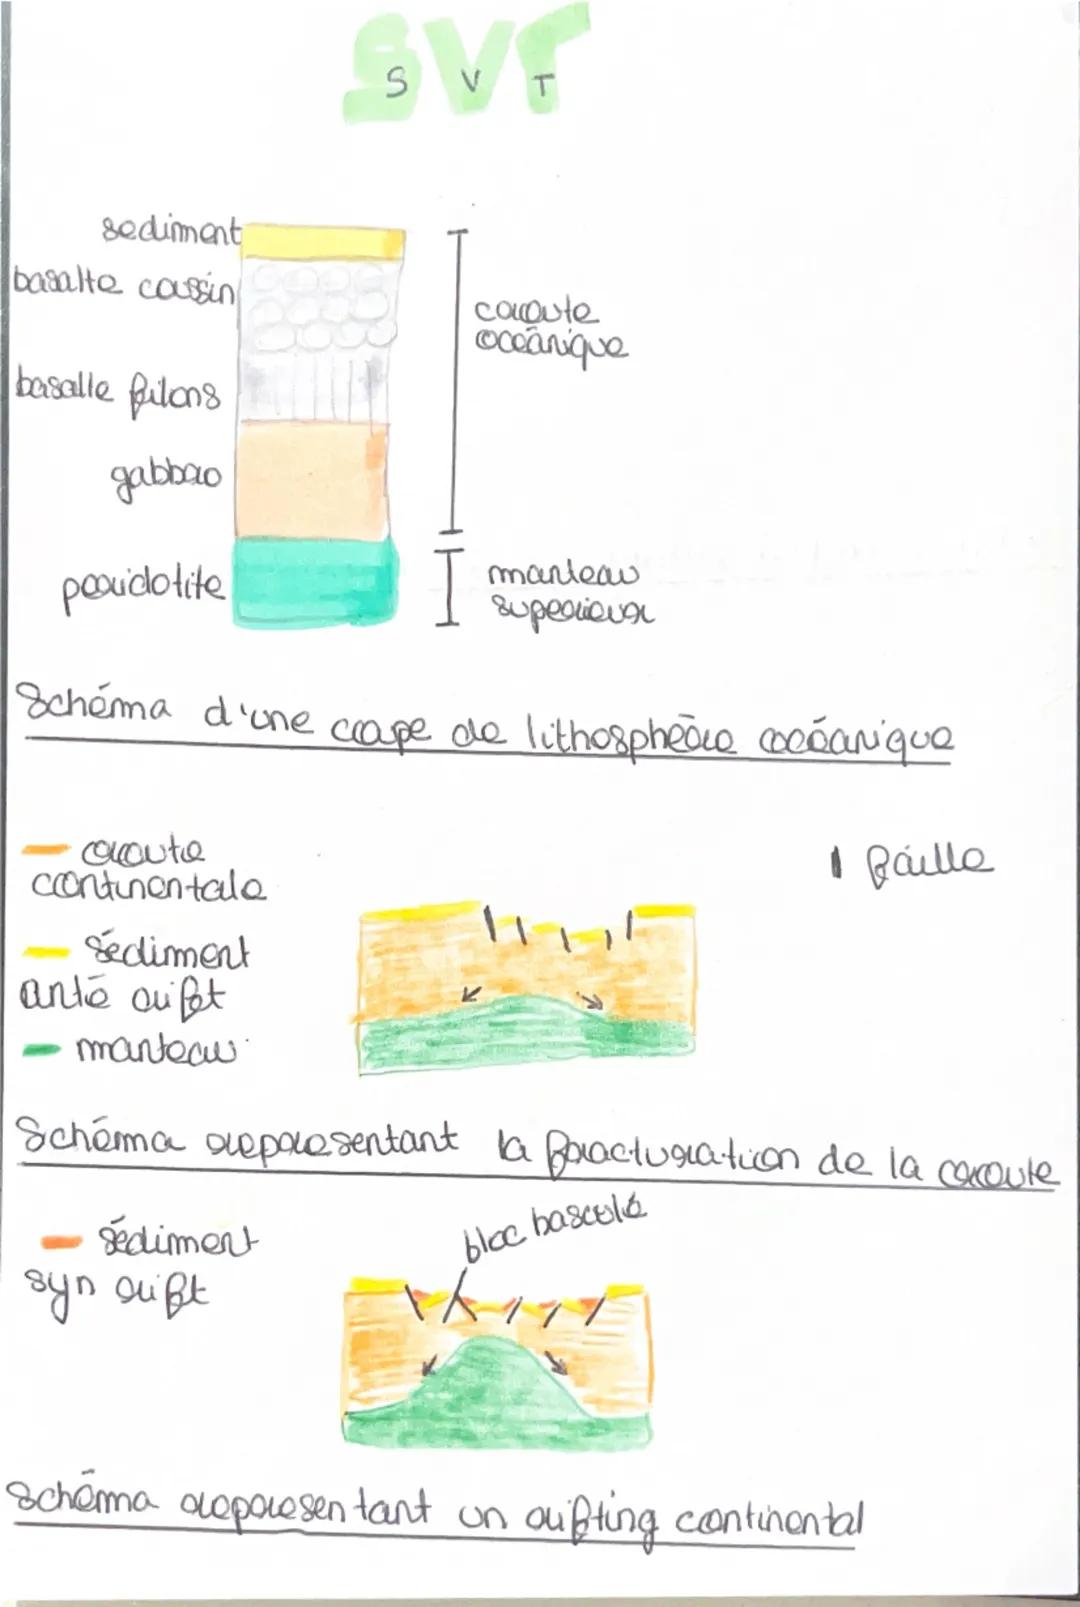 SVT
S V T
sediment
basalte cassin
croute
océanique
basalte filons
gabbro
peridotite
manteau
superieur
Schéma d'une crape de lithosphère océanique
croute
continentale
faille
sédiment
anté rift
manteau
Schéma representant la fracturation de la croute
bloc basculé
sédiment
syn rift
Schéma representant un rifting continental